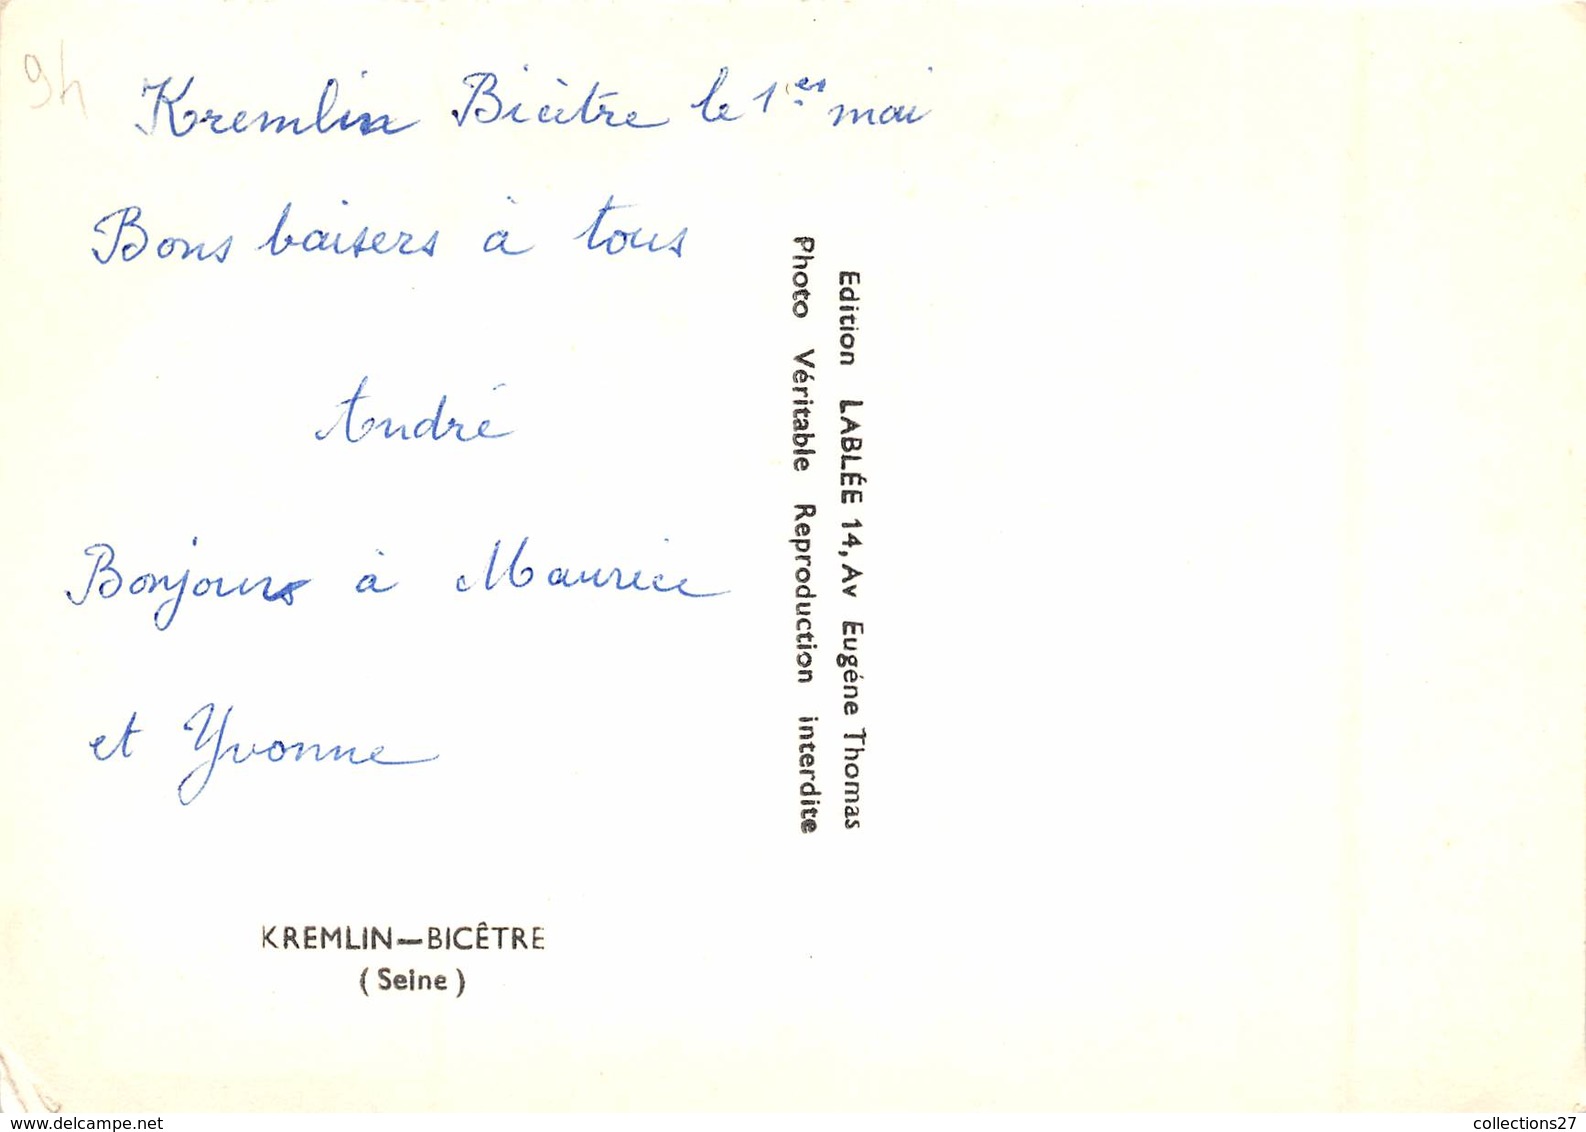 94
Kremlin Bicêtre le 1er mai
Bons baisers à tous
André
Bonjours à Maurice
et Yvonne
Edition LABLÉE 14, Av Eugéne Thomas
Photo Véritable Reproduction interdite
KREMLIN—BICÊTRE
(Seine)
www.delcampe.net
collections27